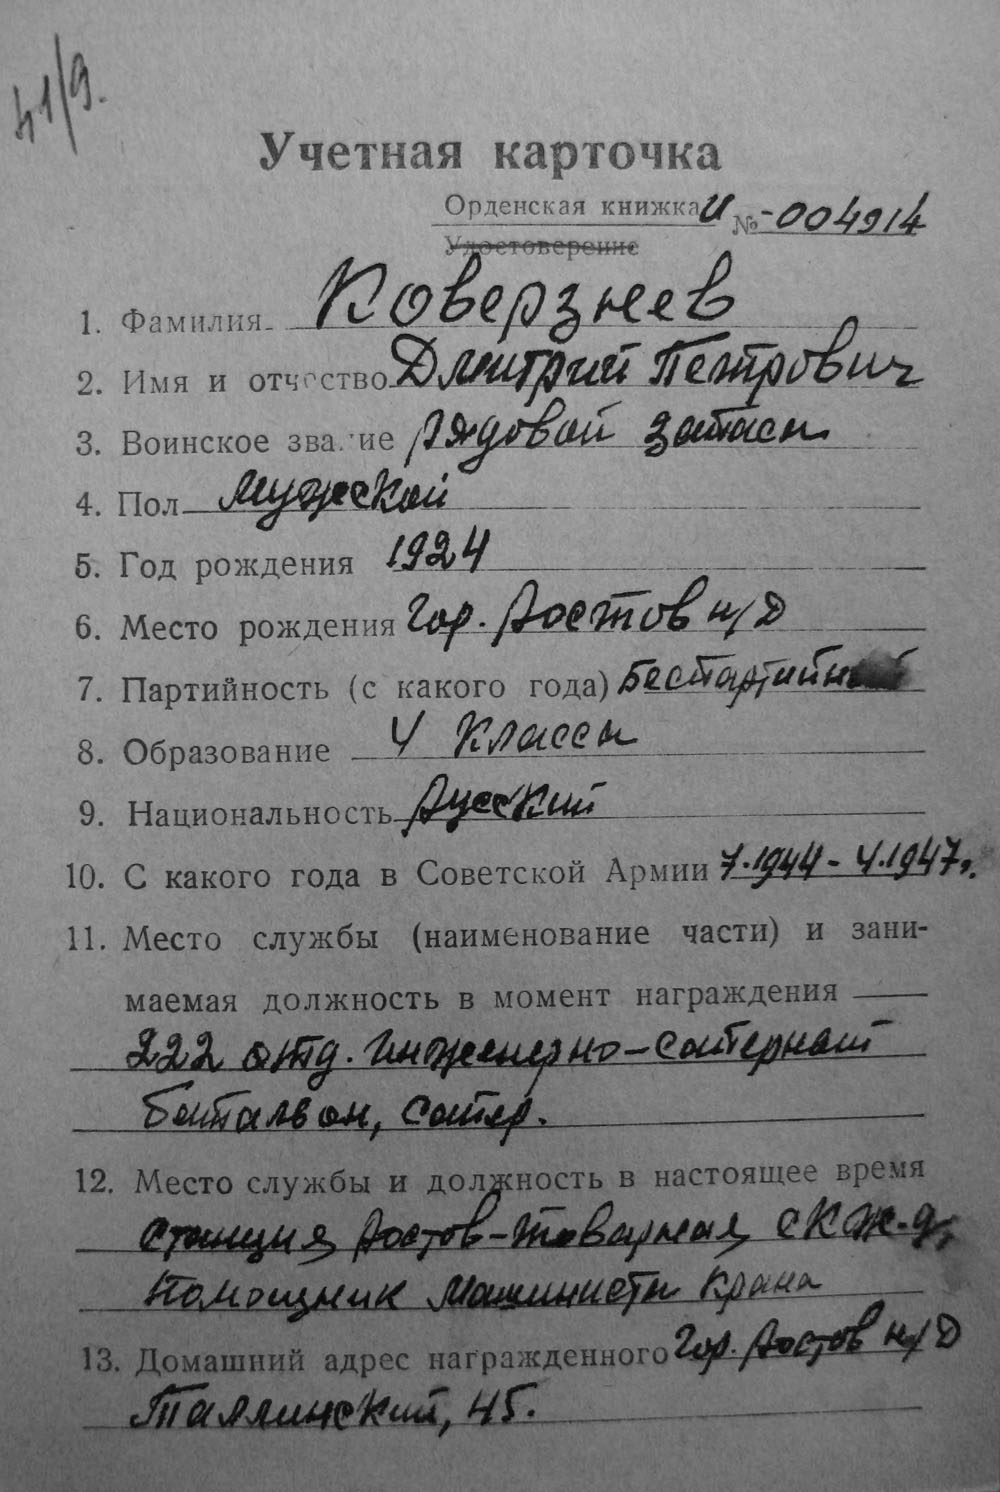 41/9.
Учетная карточка
Орденская книжка И № -004914
Удостоверение
1. Фамилия Коверзнев
2. Имя и отчество Дмитрий Петрович
3. Воинское звание рядовой запаса
4. Пол Мужской
5. Год рождения 1924
6. Место рождения Гор. Ростов н/Д
7. Партийность (с какого года) Беспартийный
8. Образование 4 Классы
9. Национальность Русский
10. С какого года в Советской Армии 7.1944 - 4.1947г.
11. Место службы (наименование части) и зани-
маемая должность в момент награждения
222 отд. Инженерно-саперный
батальон, сапер.
12. Место службы и должность в настоящее время
станция Ростов-Товарная, СКЖ.д,
Помощник Машиниста Крана
13. Домашний адрес награжденного Гор. Ростов н/Д
Таллинский, 45.